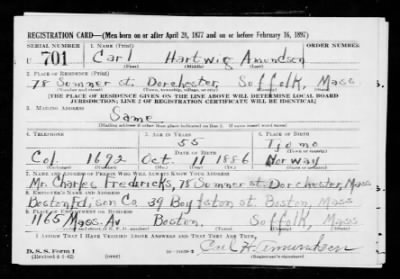 REGISTRATION CARD—(Men born on or after April 28, 1877 and on or before February 16, 1897)
SERIAL NUMBER 1. NAME (Print) ORDER NUMBER
U 701 Carl Hartwig Amundsen
(First) (Middle) (Last)
2. PLACE OF RESIDENCE (Print)
78 Sumner st. Dorchester, Suffolk, Mass
(Number and street) (Town, township, village, or city) (County) (State)
[THE PLACE OF RESIDENCE GIVEN ON THE LINE ABOVE WILL DETERMINE LOCAL BOARD
JURISDICTION; LINE 2 OF REGISTRATION CERTIFICATE WILL BE IDENTICAL]
3. MAILING ADDRESS
Same
[Mailing address if other than place indicated on line 2. If same insert word same]
4. TELEPHONE 5. AGE IN YEARS 6. PLACE OF BIRTH
55 Tjomo
Col 1692 Oct. 11 1886 Norway
7. NAME AND ADDRESS OF PERSON WHO WILL ALWAYS KNOW YOUR ADDRESS
Mr. Charles Fredericks, 78 Sumner st. Dorchester, Mass
8. EMPLOYER'S NAME AND ADDRESS
Boston Edison Co. 39 Boylston st. Boston, Mass
9. PLACE OF EMPLOYMENT OR BUSINESS
1165 Mass. Av Boston. Suffolk, Mass
(Number and street or R. F. D. number) (Town) (County) (State)
I AFFIRM THAT I HAVE VERIFIED ABOVE ANSWERS AND THAT THEY ARE TRUE.
D. S. S. Form 1 Carl H. Amundsen
(Revised 4-1-42) (over) (Registrant's signature)